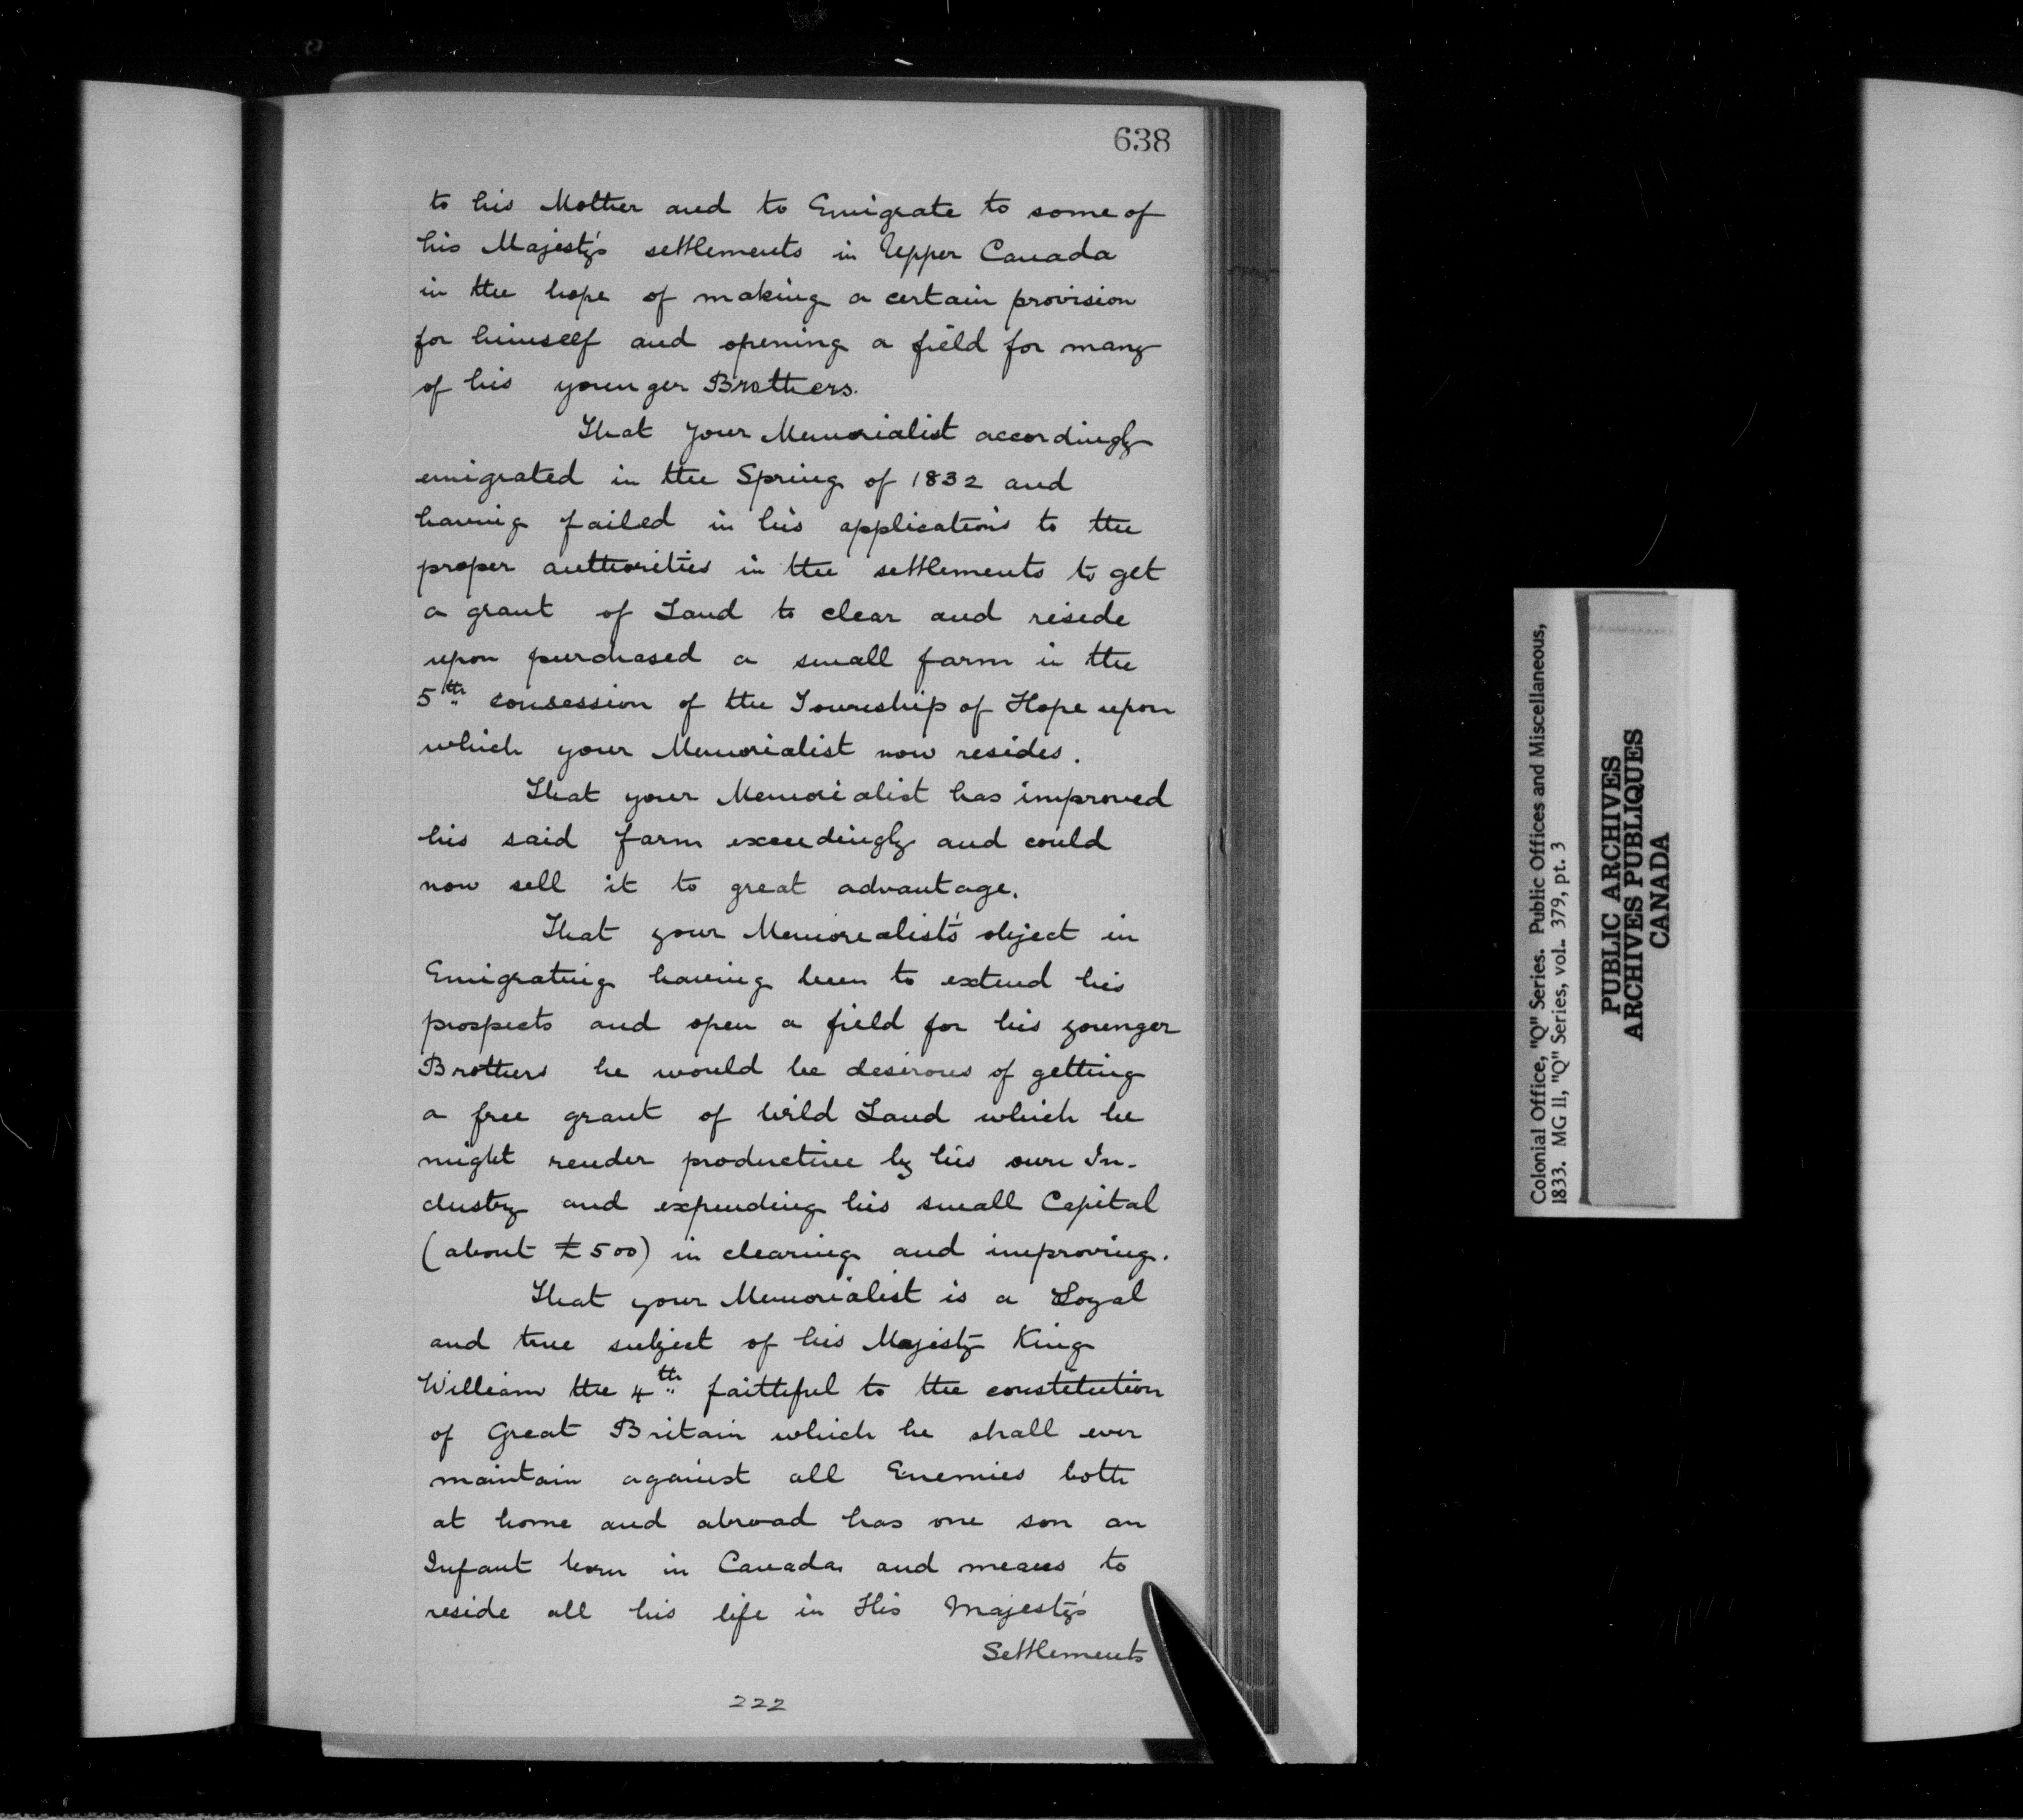 638
to his Mother and to Emigrate to some of
his Majesty's settlements in Upper Canada
in the hope of making a certain provision
for himself and opening a field for many
of his younger Brothers.
That your Memorialist accordingly
emigrated in the Spring of 1832 and
having failed in his applications to the
proper authorities in the settlements to get
a grant of Land to clear and reside
upon purchased a small farm in the
5th consession of the Township of Hope upon
which your Memorialist now resides.
That your Memorialist has improved
his said farm exceedingly and could
now sell it to great advantage.
That your Memorialist's object in
Emigrating having been to extend his
prospects and open a field for his younger
Brothers he would be desirous of getting
a free grant of Wild Land which he
might render productive by his own In-
dustry and expending his small Capital
(about £500) in clearing and improving.
That your Memorialist is a Loyal
and true subject of his Majesty King
William the 4th faithful to the constitution
of Great Britain which he shall ever
maintain against all Enemies both
at home and abroad has one son an
Infant born in Canada and means to
reside all his life in His Majesty's
Settlements
222
Colonial Office, "Q" Series. Public Offices and Miscellaneous,
1833. MG 11, "Q" Series, vol. 379, pt. 3
PUBLIC ARCHIVES
ARCHIVES PUBLIQUES
CANADA